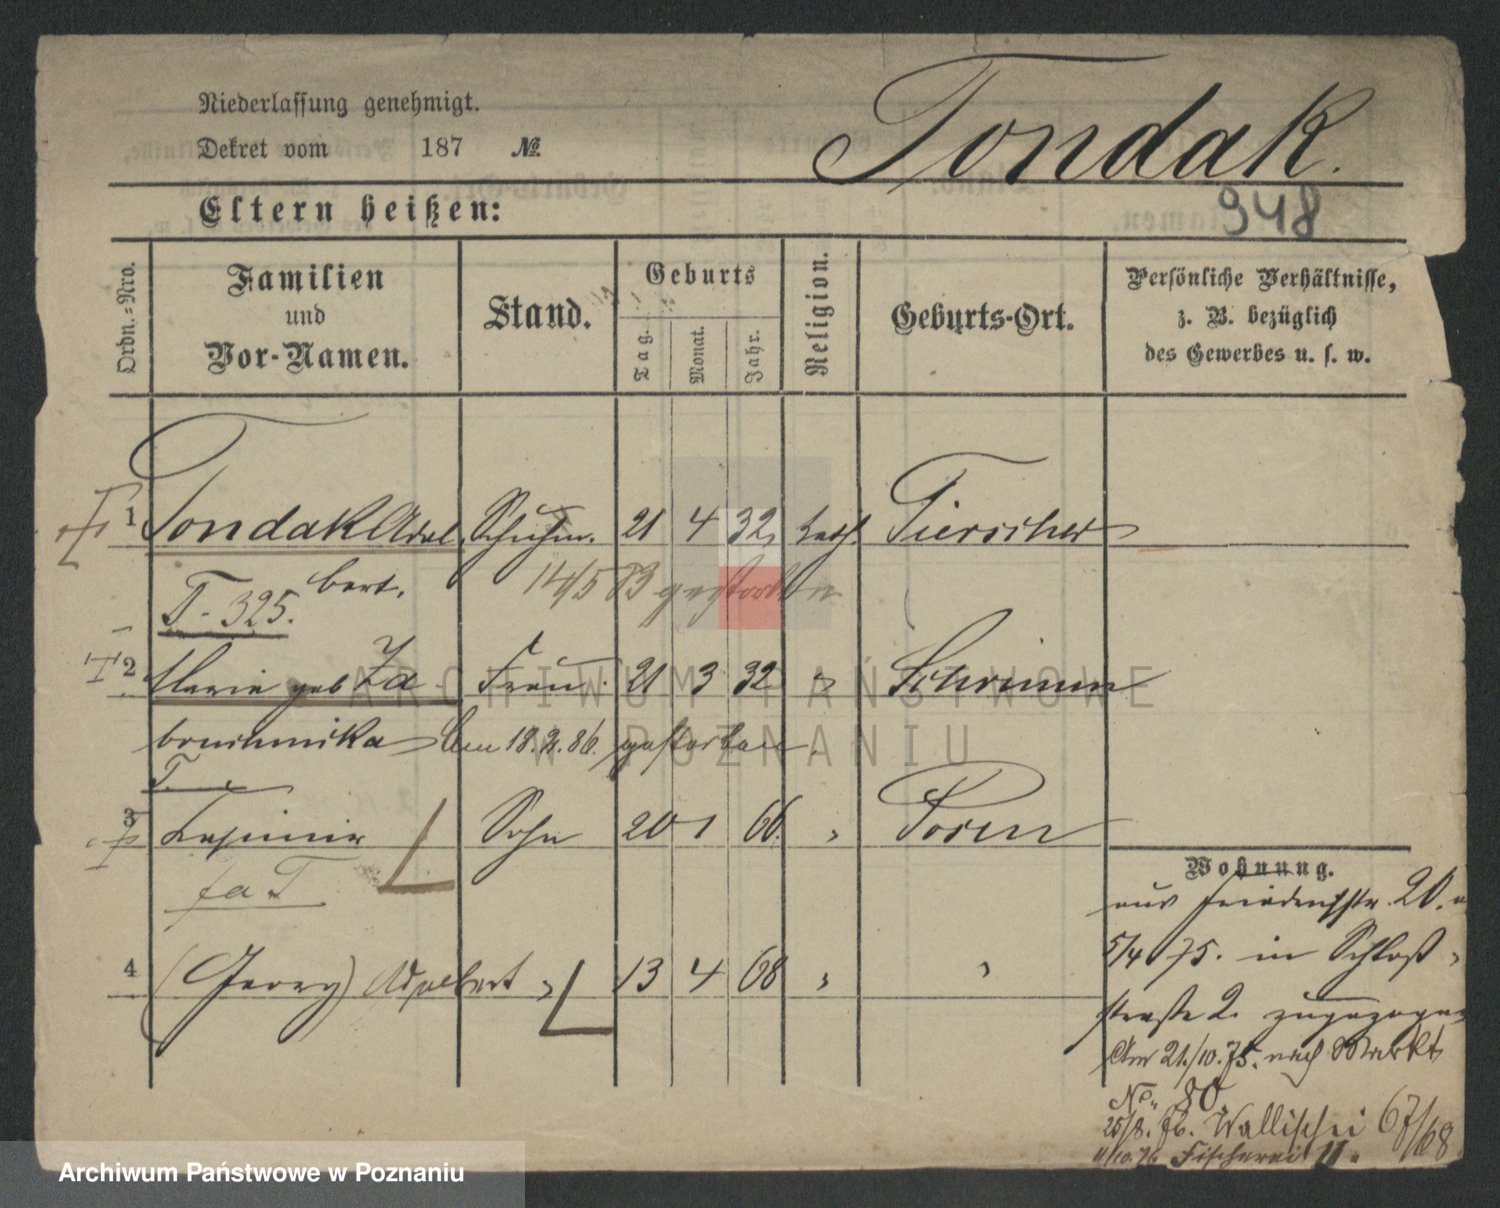 Niederlassung genehmigt.
Dekret vom 187 №
Tondak.
948
Eltern heißen:
Ordn.-Nro.
Familien
und
Vor-Namen.
Stand.
Geburts
Tag.
Monat.
Jahr.
Religion.
Geburts-Ort.
Persönliche Verhältnisse,
z. B. bezüglich
des Gewerbes u. s. w.
1 Tondak Adal Schuhm. 21 4 32 kath. 
bert. 14/5 83 gestorben
T-325.
2 Marie geb Za Frau 21 3 32 " Schrimm
bruchnika Am 18. 86. gestorben.
T.
3 Kasimir Sohn 20 1 66. " Posen
fa T
4 (Georg) Adalbert " 13 4 68 " "
Wohnung.
aus Friedrichstr. 20.
5/4 75. in Schloß-
straße 2. zugezogen
Am 21./10.75. nach Markt
No. 80.
25/8. 76. Wallischei 67/68
11/10.76 Fischerei 11.
ARCHIWUM PAŃSTWOWE
W POZNANIU
Archiwum Państwowe w Poznaniu